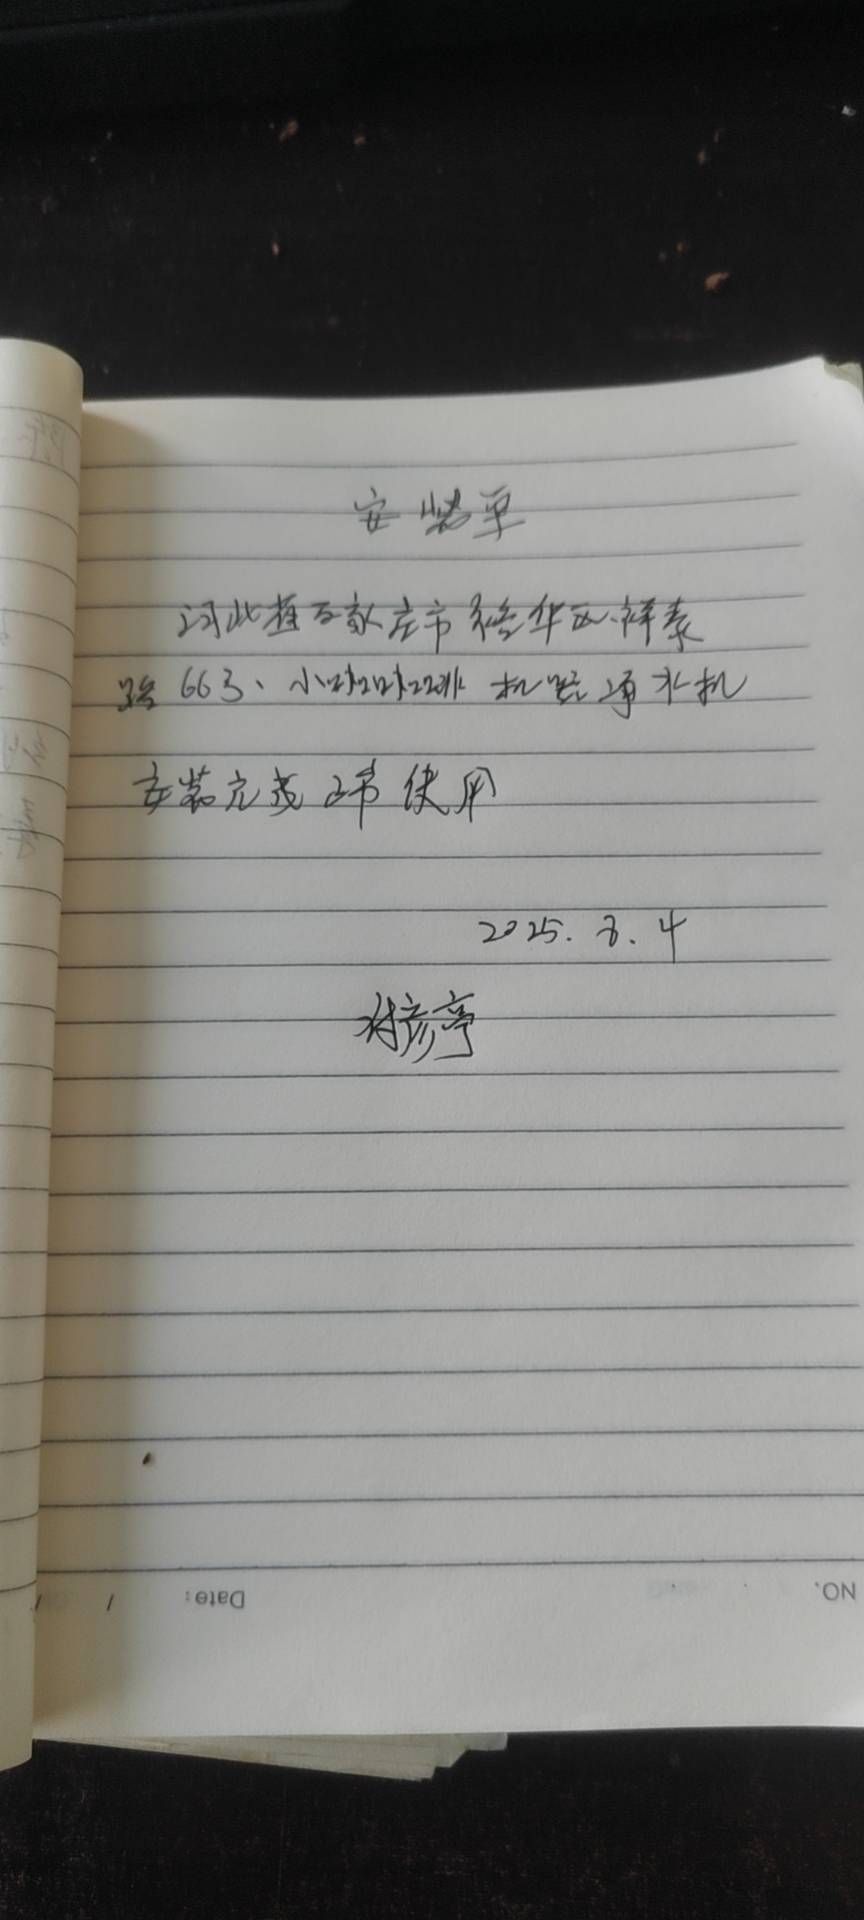 安装单
河北省石家庄市裕华区祥泰
路66号、小咖咖啡机 净水机
安装完成 正常使用
2025.8.4
彦亭
Date: /
NO.